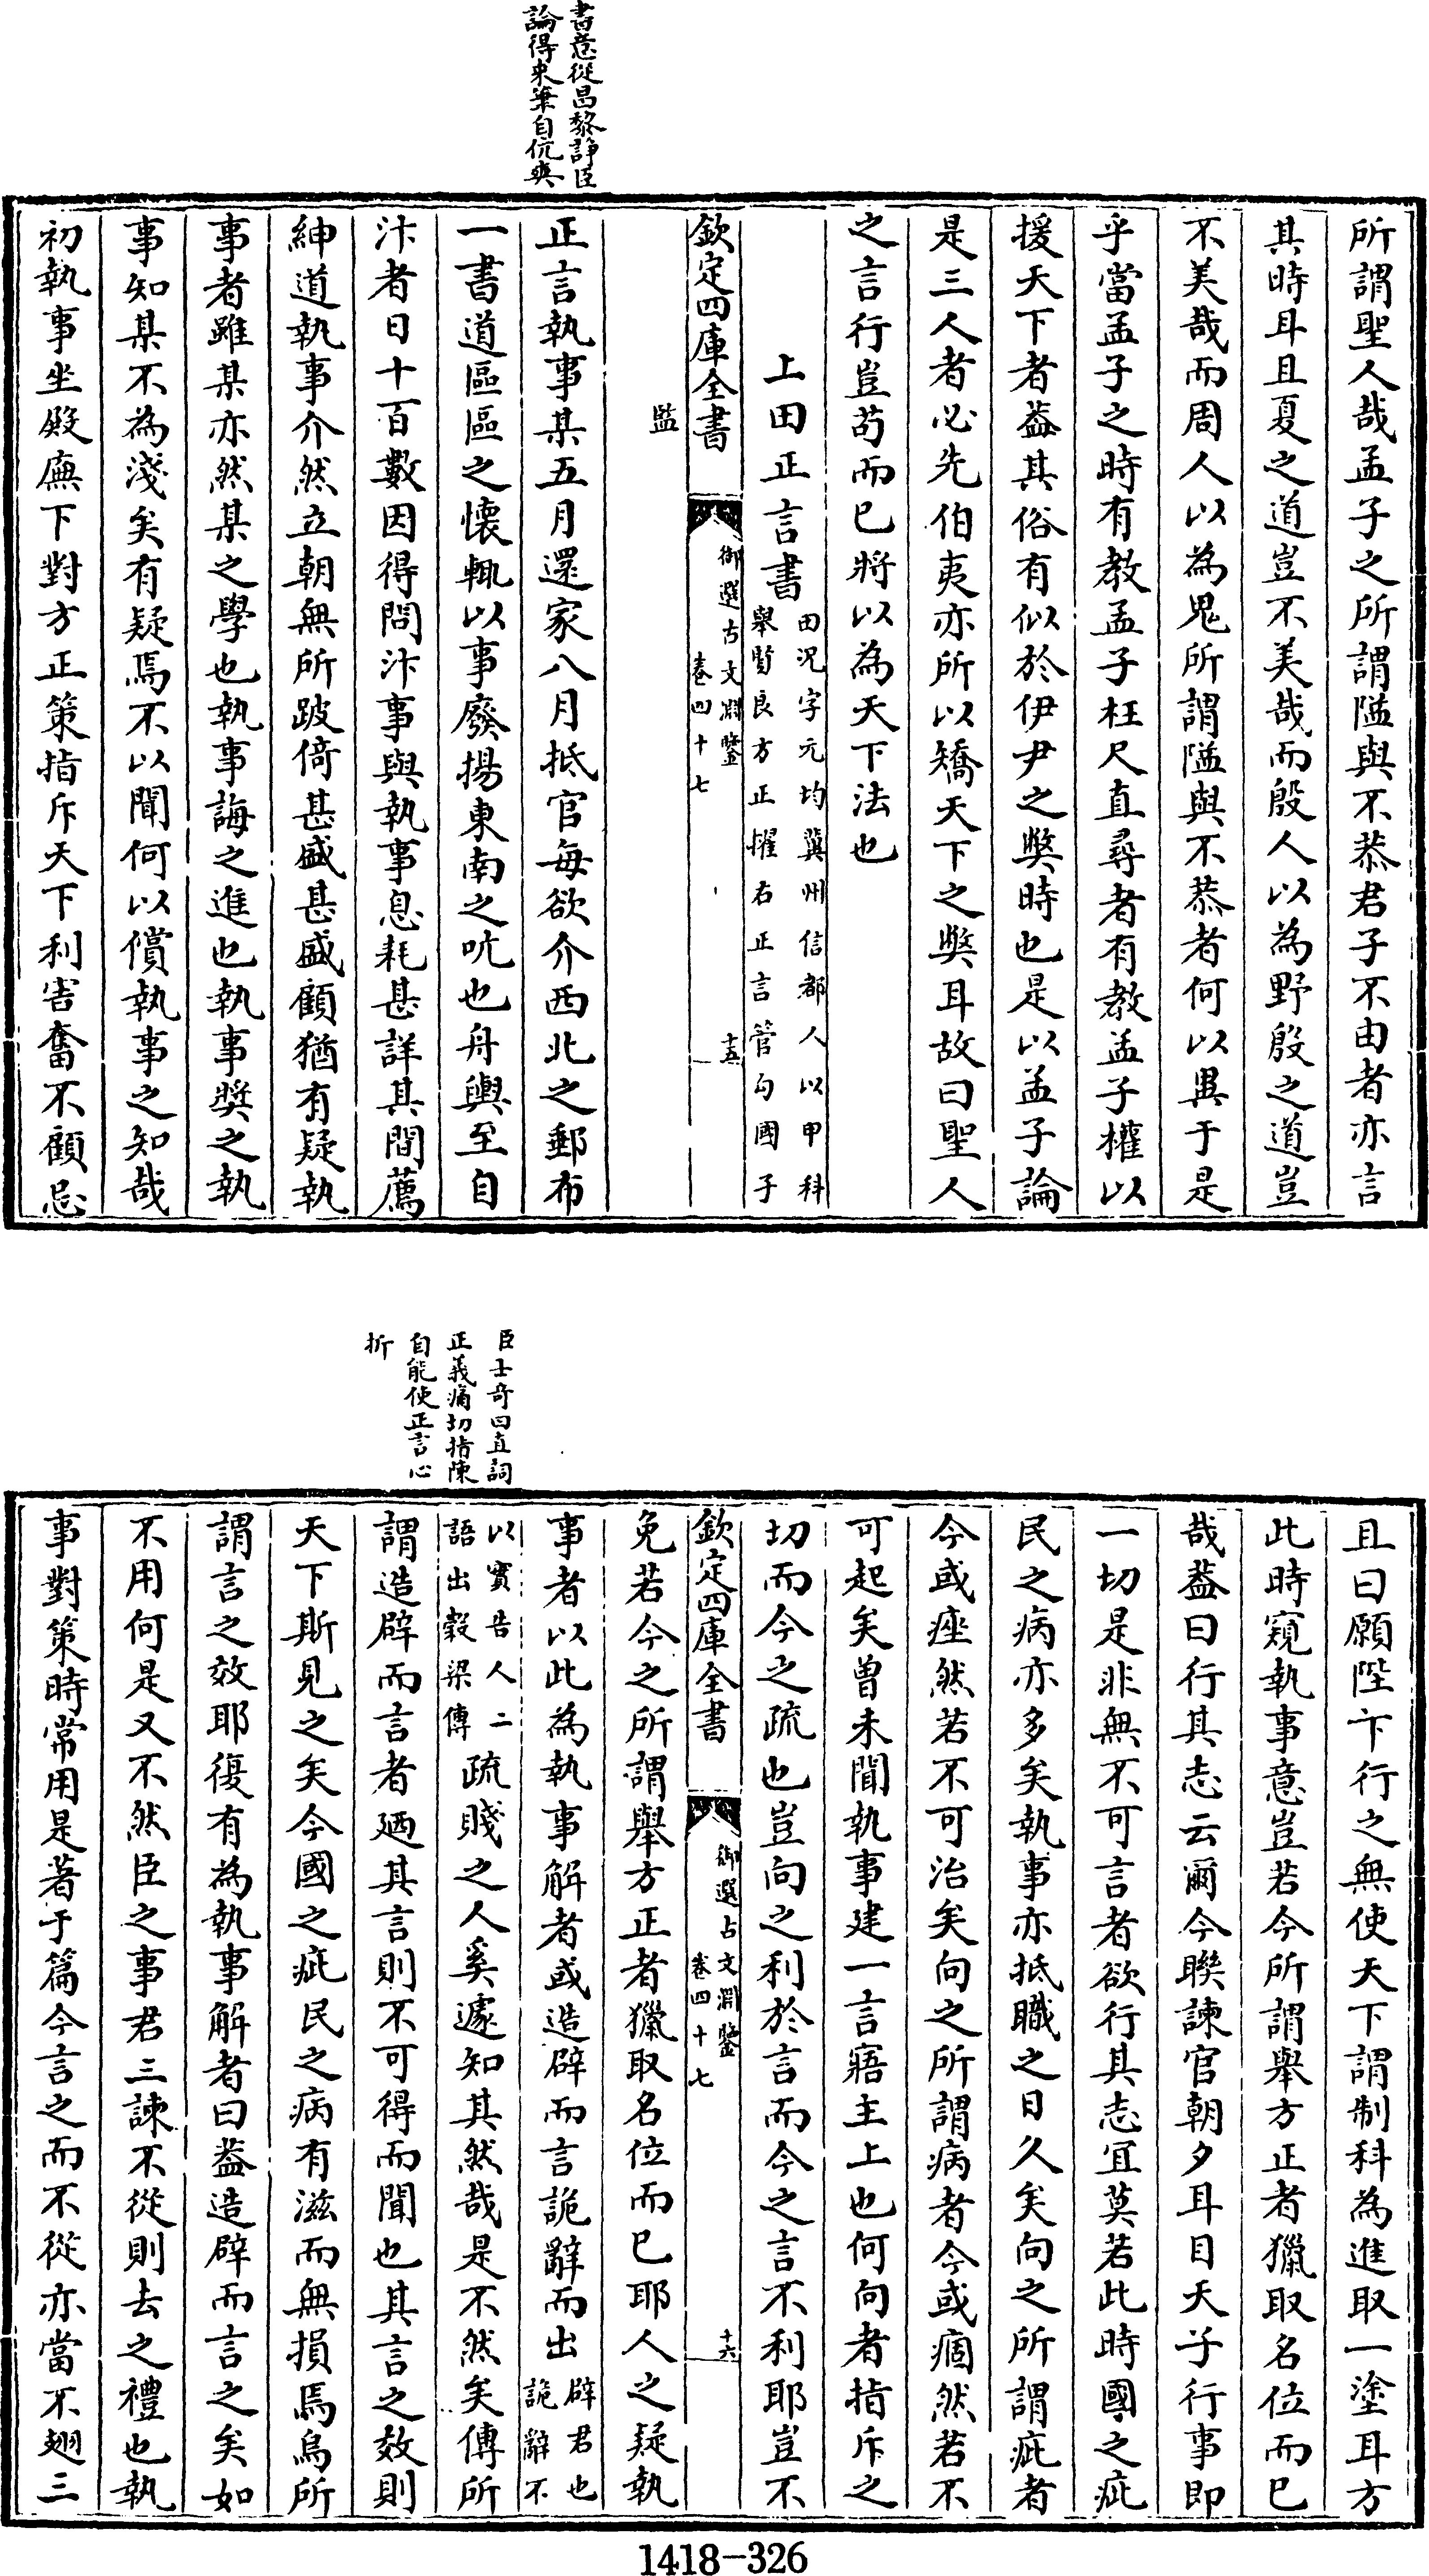 書意從昌黎諍臣
論得來筆自伉爽
所謂聖人哉孟子之所謂隘與不恭君子不由者亦言
其時耳且夏之道豈不美哉而殷人以為野殷之道豈
不美哉而周人以為鬼所謂隘與不恭者何以異于是
乎當孟子之時有教孟子枉尺直尋者有教孟子權以
援天下者葢其俗有似於伊尹之獘時也是以孟子論
是三人者必先伯夷亦所以矯天下之獘耳故曰聖人
之言行豈苟而已將以為天下法也
上田正言書
田况字元均冀州信都人以甲科
舉賢良方正擢右正言管勾國子
欽定四庫全書
御選古文淵鑒
卷四十七
十五
監
正言執事某五月還家八月抵官每欲介西北之郵布
一書道區區之懐輒以事廢揚東南之吭也舟輿至自
汴者日十百數因得問汴事與執事息耗甚詳其間薦
紳道執事介然立朝無所跛倚甚盛甚盛顧猶有疑執
事者雖某亦然某之學也執事誨之進也執事奬之執
事知某不為淺矣有疑焉不以聞何以償執事之知哉
初執事坐殿廡下對方正策指斥天下利害奮不顧忌
臣士奇曰直詞
正義痛切指陳
自能使正言心
折
且曰願陛下行之無使天下謂制科為進取一塗耳方
此時窺執事意豈若今所謂舉方正者獵取名位而已
哉葢曰行其志云爾今聨諫官朝夕耳目天子行事即
一切是非無不可言者欲行其志宜莫若此時國之疵
民之病亦多矣執事亦抵職之日久矣向之所謂疵者
今或痤然若不可治矣向之所謂病者今或痼然若不
可起矣曾未聞執事建一言寤主上也何向者指斥之
切而今之疏也豈向之利於言而今之言不利耶豈不
欽定四庫全書
御選古文淵鑒
卷四十七
十六
免若今之所謂舉方正者獵取名位而已耶人之疑執
事者以此為執事解者或造辟而言詭辭而出
辟君也
詭辭不
以實告人二
語出穀梁傳
疏賤之人奚遽知其然哉是不然矣傳所
謂造辟而言者廼其言則不可得而聞也其言之效則
天下斯見之矣今國之疵民之病有滋而無損焉烏所
謂言之效耶復有為執事解者曰葢造辟而言之矣如
不用何是又不然臣之事君三諫不從則去之禮也執
事對策時常用是著于篇今言之而不從亦當不翅三
1418-326